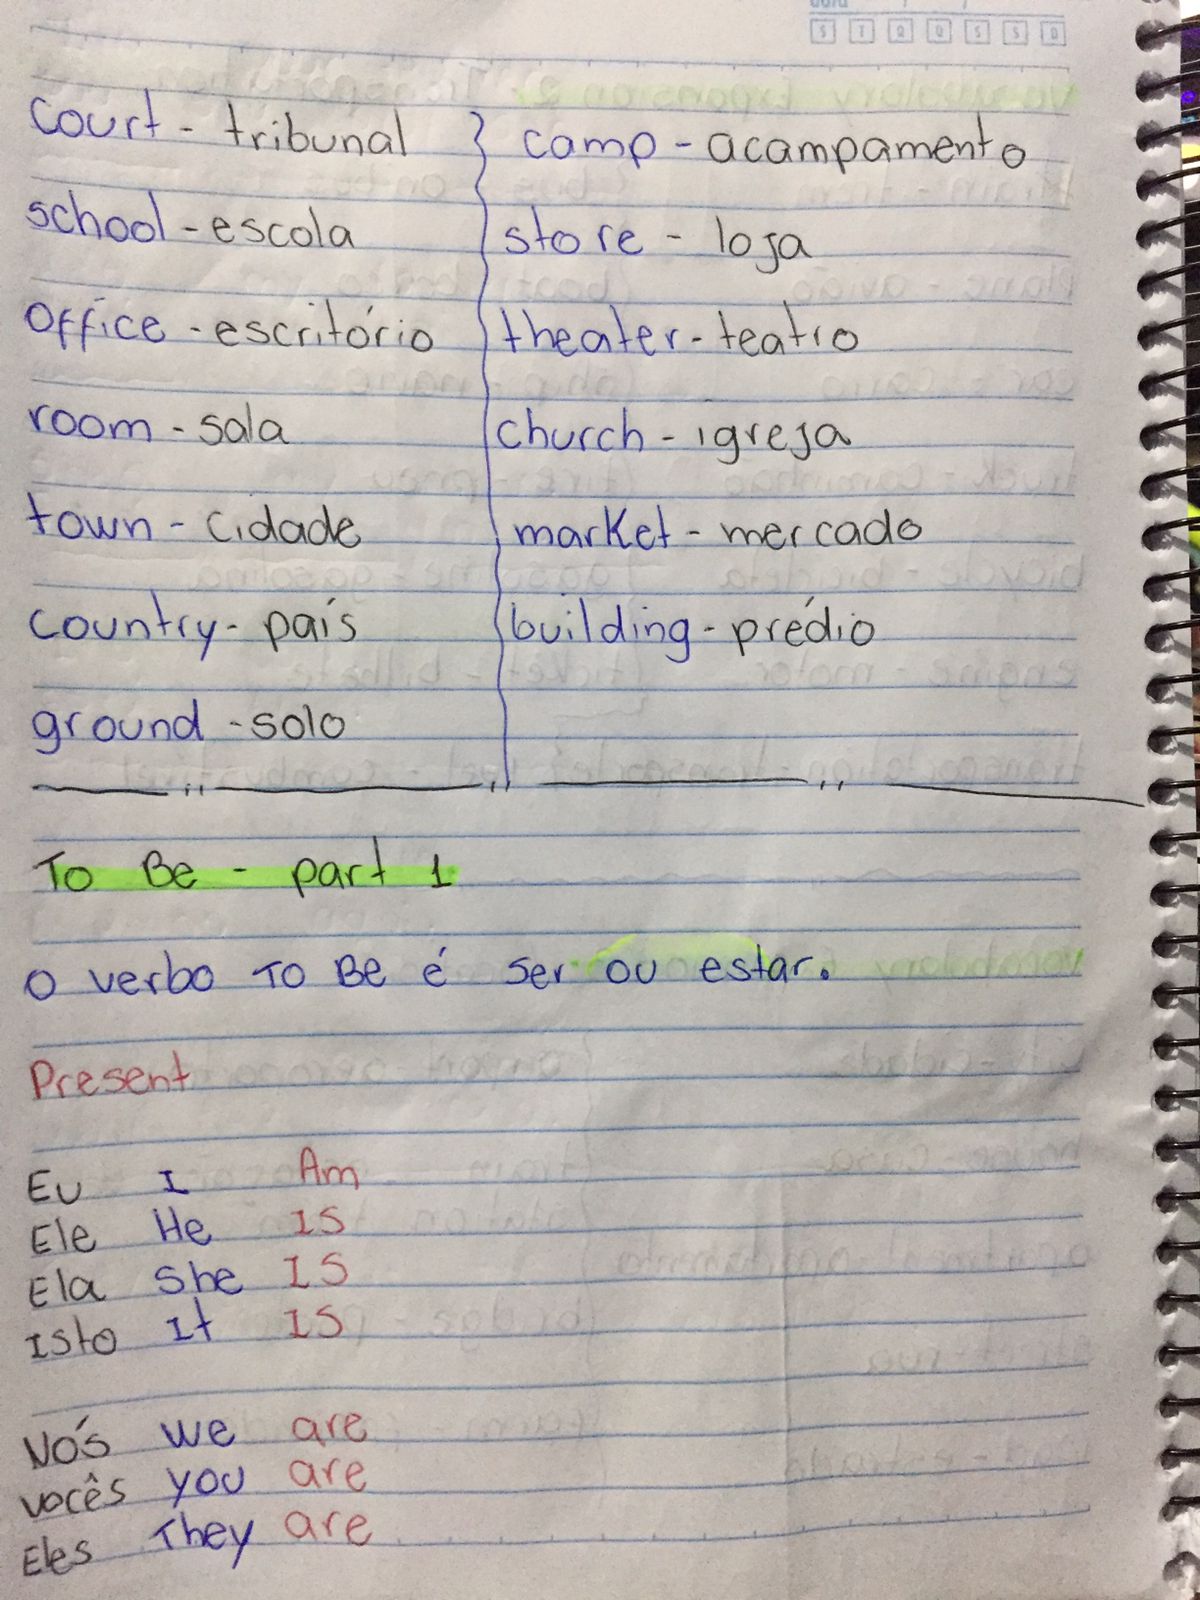 S T Q Q S S D
court - tribunal
school - escola
office - escritório
room - sala
town - cidade
country - país
ground - solo
camp - acampamento
store - loja
theater - teatro
church - igreja
market - mercado
building - prédio
To Be - part 1
O verbo To Be é ser ou estar.
Present
Eu I Am
Ele He IS
Ela She IS
Isto It IS
Nós we are
vocês you are
Eles They are